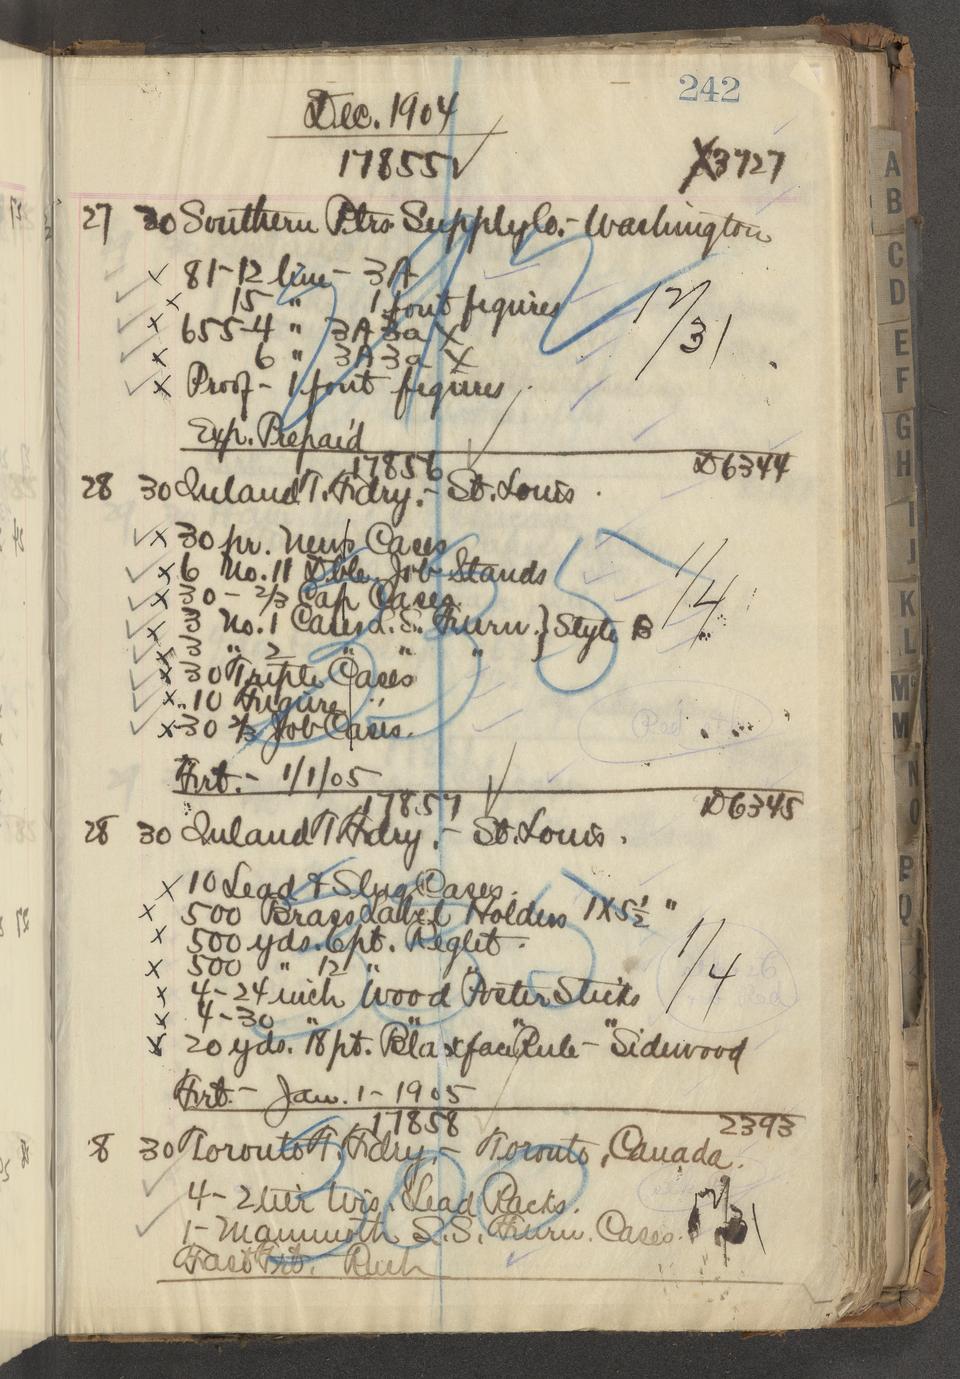 242
Dec. 1904
17855 X3727
27 30 Southern Ptrs. Supply Co. - Washington
x 81-12 line - 3A
x 15 " 1 font figures 12/31
x 655-4 " 3A 3a X
x 6 " 3A 3a X
x Proof - 1 font figures
Exp. Prepaid
17856 D6344
28 30 Inland T. Fdry. - St. Louis
x 30 pr. News Cases
x 6 No. 11 Dble. Job Stands 1/4
x 30 - 2/3 Cap Cases
x 3 No. 1 Cases L.S. Furn. } Style B
x 3 " 2 " " "
x 30 Triple Cases
x 10 Figure "
x 30 2/3 Job Cases.
Frt. - 1/1/05
17857 D6345
28 30 Inland T. Fdry. - St. Louis.
x 10 Lead & Slug Cases.
x 500 Brass Label Holders 1 X 5 1/2 "
x 500 yds. 6 pt. Reglet. 1/4
x 500 " 12 " "
x 4-24 inch Wood Poster Sticks
x 4-30 " " " "
x 20 yds. 18 pt. Blackface Rule - Sidewood
Frt. - Jan. 1 - 1905
17858 2393
8 30 Toronto T. Fdry. - Toronto, Canada.
4 - 2 tier Wis. Lead Racks.
1 - Mammoth L.S. Furn. Cases. 12/31
Fast Frt. Rush
A
B
C
D
E
F
G
H
I
J
K
L
Mc
M
N
O
P
Q